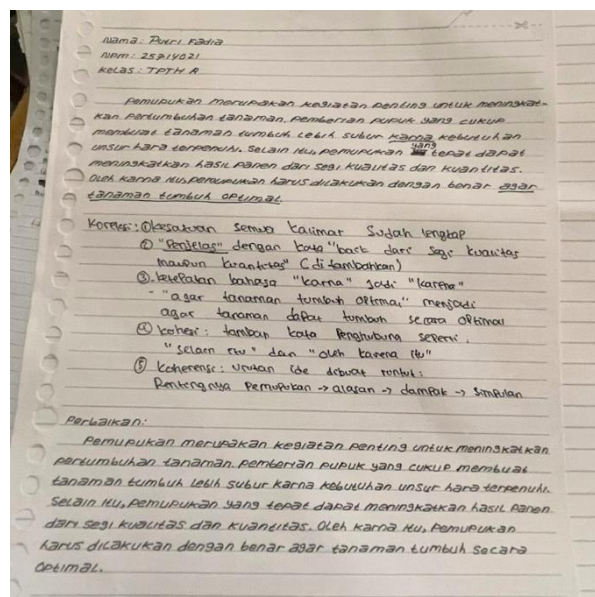 Nama : Putri Fadia
NPM : 25714021
Kelas : TPTH A
Pemupukan merupakan kegiatan penting untuk meningkat-
kan pertumbuhan tanaman. Pemberian pupuk yang cukup
membuat tanaman tumbuh lebih subur karna kebutuhan
unsur hara terpenuhi. Selain itu, pemupukan yang tepat dapat
meningkatkan hasil panen dari segi kualitas dan kuantitas.
Oleh karna itu, pemupukan harus dilakukan dengan benar agar
tanaman tumbuh optimal.
Koreksi : ① kesatuan semua kalimat sudah lengkap
② "Penjelas" dengan kata "baik dari segi kualitas
maupun kuantitas" (ditambahkan)
③. ketepatan bahasa "karna" jadi "karena"
- "agar tanaman tumbuh optimal" menjadi
agar tanaman dapat tumbuh secara optimal
④ kohesi : tambah kata penghubung seperti.
"selain itu" dan "oleh karena itu"
⑤ koherensi : urutan ide dibuat runtut :
Pentingnya pemupukan → alasan → dampak → simpulan
Perbaikan :
Pemupukan merupakan kegiatan penting untuk meningkatkan
pertumbuhan tanaman. Pemberian pupuk yang cukup membuat
tanaman tumbuh lebih subur karna kebutuhan unsur hara terpenuhi.
Selain itu, pemupukan yang tepat dapat meningkatkan hasil panen
dari segi kualitas dan kuantitas. Oleh karna itu, pemupukan
harus dilakukan dengan benar agar tanaman tumbuh secara
optimal.